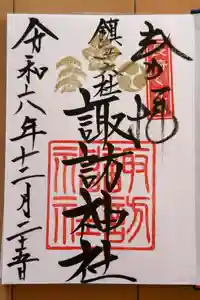 奉拝
鎮守社
諏訪神社
諏訪神社
令和六年十二月二十五日